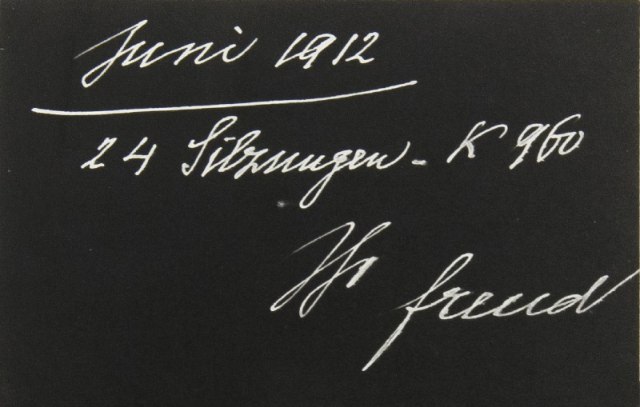 Juni 1912
24 Sitzungen - K 960
Ihr freud